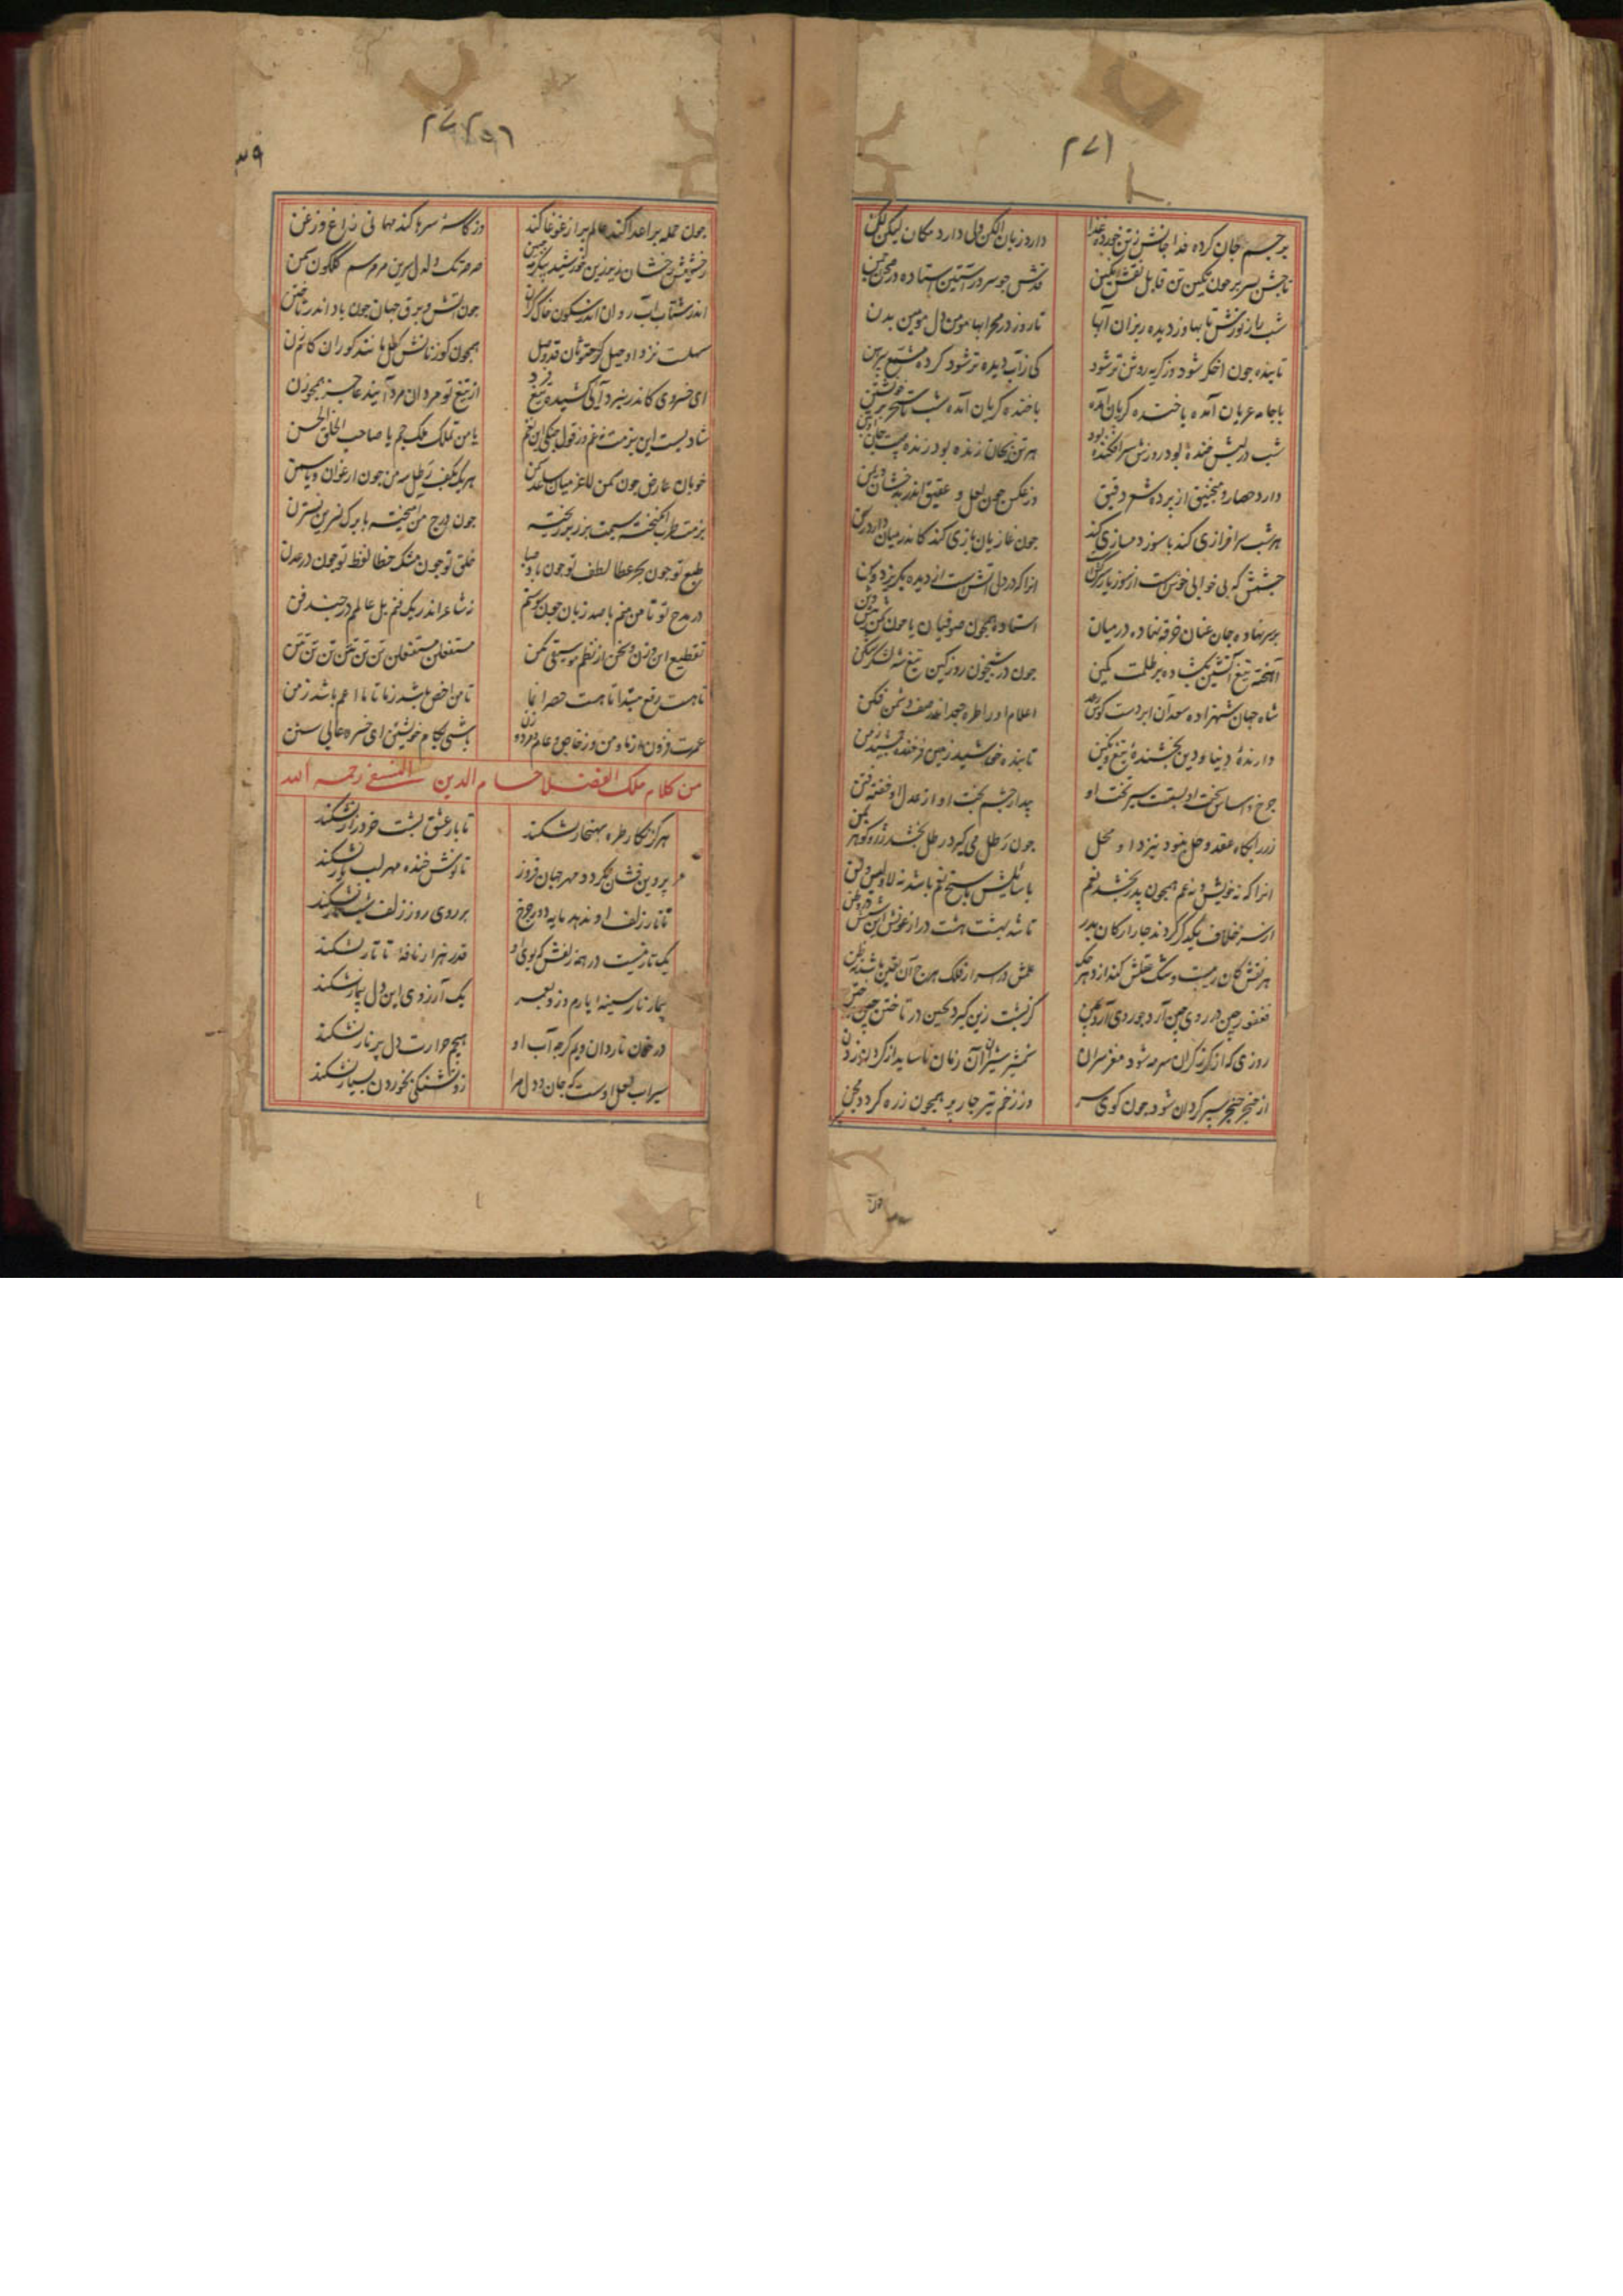 ۲۷۱
بر جسم جان کرده فدا جانش ز تن خورده غذا
دارد زبان الکن ولی دارد مکان لیکن لکن
تا جشن بسر بر چون نکین تن قابل نقش نکین
قدش چو سرو راستین استاده در صحن چمن
شب را ز نورش تابها وز دیده ریزان آبها
تا روز در محرابها مومن دل مومین بدن
تابنده چون اخکر شود وز کریه روشن تر شود
کی زاب دیده تر شود کرده مشمع پیرهن
با جامه عریان آمده با خنده کریان آمده
با خنده کریان آمده شب تا سحر بر خویشتن
شب در لبش خنده بود روزش سرافکنده بود
هر تن بجان زنده بود زنده بتست جان
دارد حصار و منجنیق از پرده شمع دقیق
وز عکس چون لعل و عقیق اندر بدخشان و یمن
هر شب سرافرازی کند با سوز دمسازی کند
چون غازیان بازی کند کاندر میان دارد رسن
چشمش که بی خوابی خوش است از سوز
انرا که در دل آتش است از دیده بکریزد وسن
بر سر نهاده جان عنان خرقه نهاده در میان
استاده همچون صوفیان یا چون
آهخته تیغ آتشین بکشاده بر ظلمت کمین
چون در شبیخون روز کین تیغ شه لشکرشکن
شاه جهان شهزاده سعد آن ابر دست کوس رعد
اعلام او را طره جعد اندر صف دشمن فکن
دارنده دنیا و دین بخشنده تیغ و نکین
تابنده خورشید زمین فرخنده جمشید زمن
چرخ و اساس بخت او پستست پیش تخت او
بیدار چشم بخت او از عدل او خفته فتن
زر را بکاه عقد و حل نبود بنزد او محل
چون رطل می کیرد رطل بخشد زر و کوهر بمن
انرا که نه خویش و نه عم همچون پدر بخشد نعم
با سائلش پاسخ نعم باشد نه لا و لیس و لن
از سر خلاف یکدکر کردند چار ارکان بدر
تا شد بهشت هشت در از عونش این شش در وطن
هر نقش کان ریبست و شک عقلش کند از دهر حک
علمش در اسرار فلک هرچ آن یقین باشد نه ظن
فغفور چین در روی چین آرد چو روی آرد بکین
کز پشت زین کیرد بچین در تاختن چین ختن
روزی که از کرز کران سرمه شود مغز سران
شمشیر شیران آن زمان ناساید از کردن زدن
از خنجر خنجر سپر کردان شود چون کوی سر
وز زخم تیر چار پر همچون زره کردد مجن
چون
۲۷۲
چون حمله بر اعدا کند عالم پر از غوغا کند
وز کاسه سرها کند مهمانی زاغ و زغن
رخشش رخشان زیر زین خورشید پیکر مه جبین
صرصر تک و دلدل سرین مرمر سم کلکون سمن
اندر شتاب آب روان اندر سکون خاک کران
چون آتش و برق جهان چون باد اندر تاختن
سهلست نزد او حیل کر خود بدان قدر و محل
همچون کوزنانش بکل مانند کوران کاه تن
ای خسروی کاندر نبرد آیی کشیده تیغ فرد
از تیغ تو مردان مرد آیند عاجز همچو زن
شادیست این بزمت نه غم وز قول چنکی زیر و بم
یا من تملک ملک جم یا صاحب الخلق الحسن
خوبان عارض چون سمن لاغر میان ساعد سمن
هر یک بکف بر رطل من چون ارغوان و یاسمن
بزمت طرب انکیخته سیمت بزر بر ریخته
چون درج من آمیخته با برک نسرین نسترن
طبع تو چون بحر عطا لطف تو چون باد صبا
خلق تو چون مشک خطا لفظ تو چون در عدن
در مدح تو تا من منم با صد زبان چون سوسنم
نه شاعر اندر یک فنم بل عالم در چند فن
تقطیع این وزن سخن از نظم موسیقی بکن
مستفعلن مستفعلن تن تن تنن تن تن تنن
تا هست رفع مبتدا تا هست حصر انما
تا من اخص باشد ز ما تا ما اعم باشد ز من
عمرت فزون از ما و من وز خاص و عام مرد و زن
باشی بکام خویشتن ای خسرو عالی سنن
من کلام ملک الفضلا حسام الدین النسفی رحمه الله
هرکز نکار طره بهنجار نشکند
تا بار عشق پشت خرد زار نشکند
پروین فشان نکردد مهر جهان فروز
تا نوش خنده مهر لب یار نشکند
تا تار زلف او ندهد مایه دور چرخ
بر روی روز زلف شب تار نشکند
یک تار نیست در همه زلفش که بوی او
قدر هزار نافه تاتار نشکند
بیمار نار سینه ام یارم وز و بعمر
یک آرزوی این دل بیمار نشکند
درمان ناردان ویم کرچه آب او
هیچم حرارت دل پر نار نشکند
سیراب لعل اوست که جان و دل مرا
زو تشنکی بخوردن بسیار نشکند